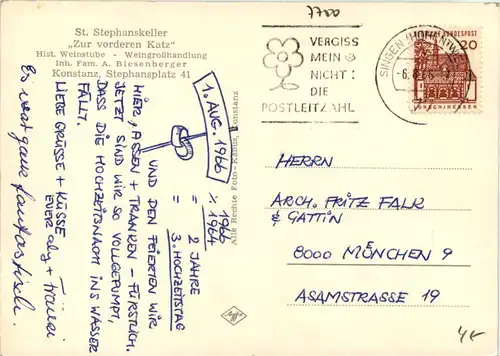 7700
St. Stephanskeller
„Zur vorderen Katz"
Hist. Weinstube - Weingroßhandlung
Inh. Fam. A. Biesenberger
Konstanz, Stephansplatz 41
1. AUG. 1966
1966
% 1964
= 2 JAHRE
= 3. HOCHZEITSTAG
UND DEN FEIERTEN WIR
HIER, ASSEN + TRANKEN - FÜRSTLICH.
JETZT SIND WIR SO VOLLGEPUMPT,
DASS DIE HOCHZEITSNACHT INS WASSER
FÄLLT.
LIEBE GRÜSSE + KÜSSE
EUER
Es war ganz fantastisch.
Alle Rechte Foto - Konstanz
Agfa
VERGISS
MEIN
NICHT:
DIE
POSTLEITZAHL
SINGEN (HOHENTWIEL)
DEUTSCHE BUNDESPOST
20
LORSCH/HESSEN
HERRN
ARCH. FRITZ FALK
& GATTIN
8000 MÜNCHEN 9
ASAMSTRASSE 19